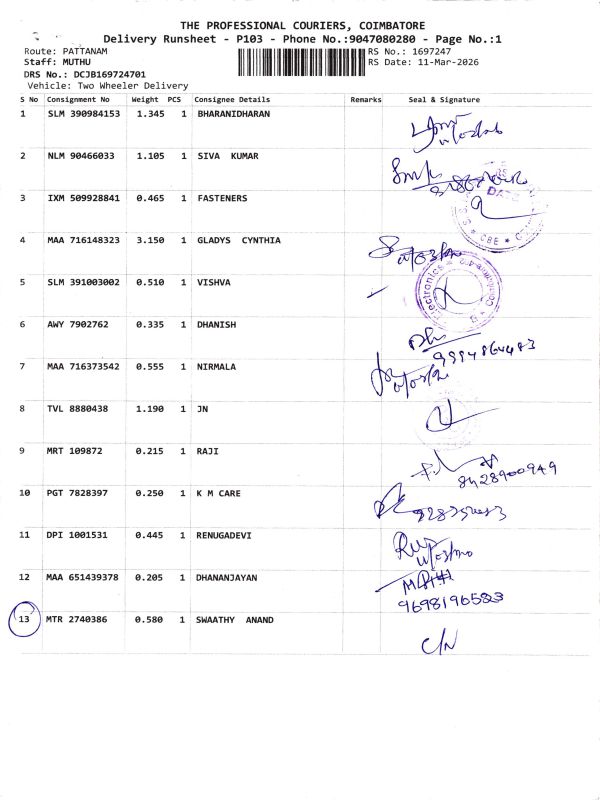 THE PROFESSIONAL COURIERS, COIMBATORE
Delivery Runsheet - P103 - Phone No.:9047080280 - Page No.:1
Route: PATTANAM RS No.: 1697247
Staff: MUTHU RS Date: 11-Mar-2026
DRS No.: DCJB169724701
Vehicle: Two Wheeler Delivery
S No Consignment No Weight PCS Consignee Details Remarks Seal & Signature
1 SLM 390984153 1.345 1 BHARANIDHARAN
2 NLM 90466033 1.105 1 SIVA KUMAR
3 IXM 509928841 0.465 1 FASTENERS
4 MAA 716148323 3.150 1 GLADYS CYNTHIA
5 SLM 391003002 0.510 1 VISHVA
Electronics
6 AWY 7902762 0.335 1 DHANISH
9994864483
7 MAA 716373542 0.555 1 NIRMALA
8 TVL 8880438 1.190 1 JN
9 MRT 109872 0.215 1 RAJI
8428900949
10 PGT 7828397 0.250 1 K M CARE
11 DPI 1001531 0.445 1 RENUGADEVI
12 MAA 651439378 0.205 1 DHANANJAYAN
9698196583
13 MTR 2740386 0.580 1 SWAATHY ANAND
C/N